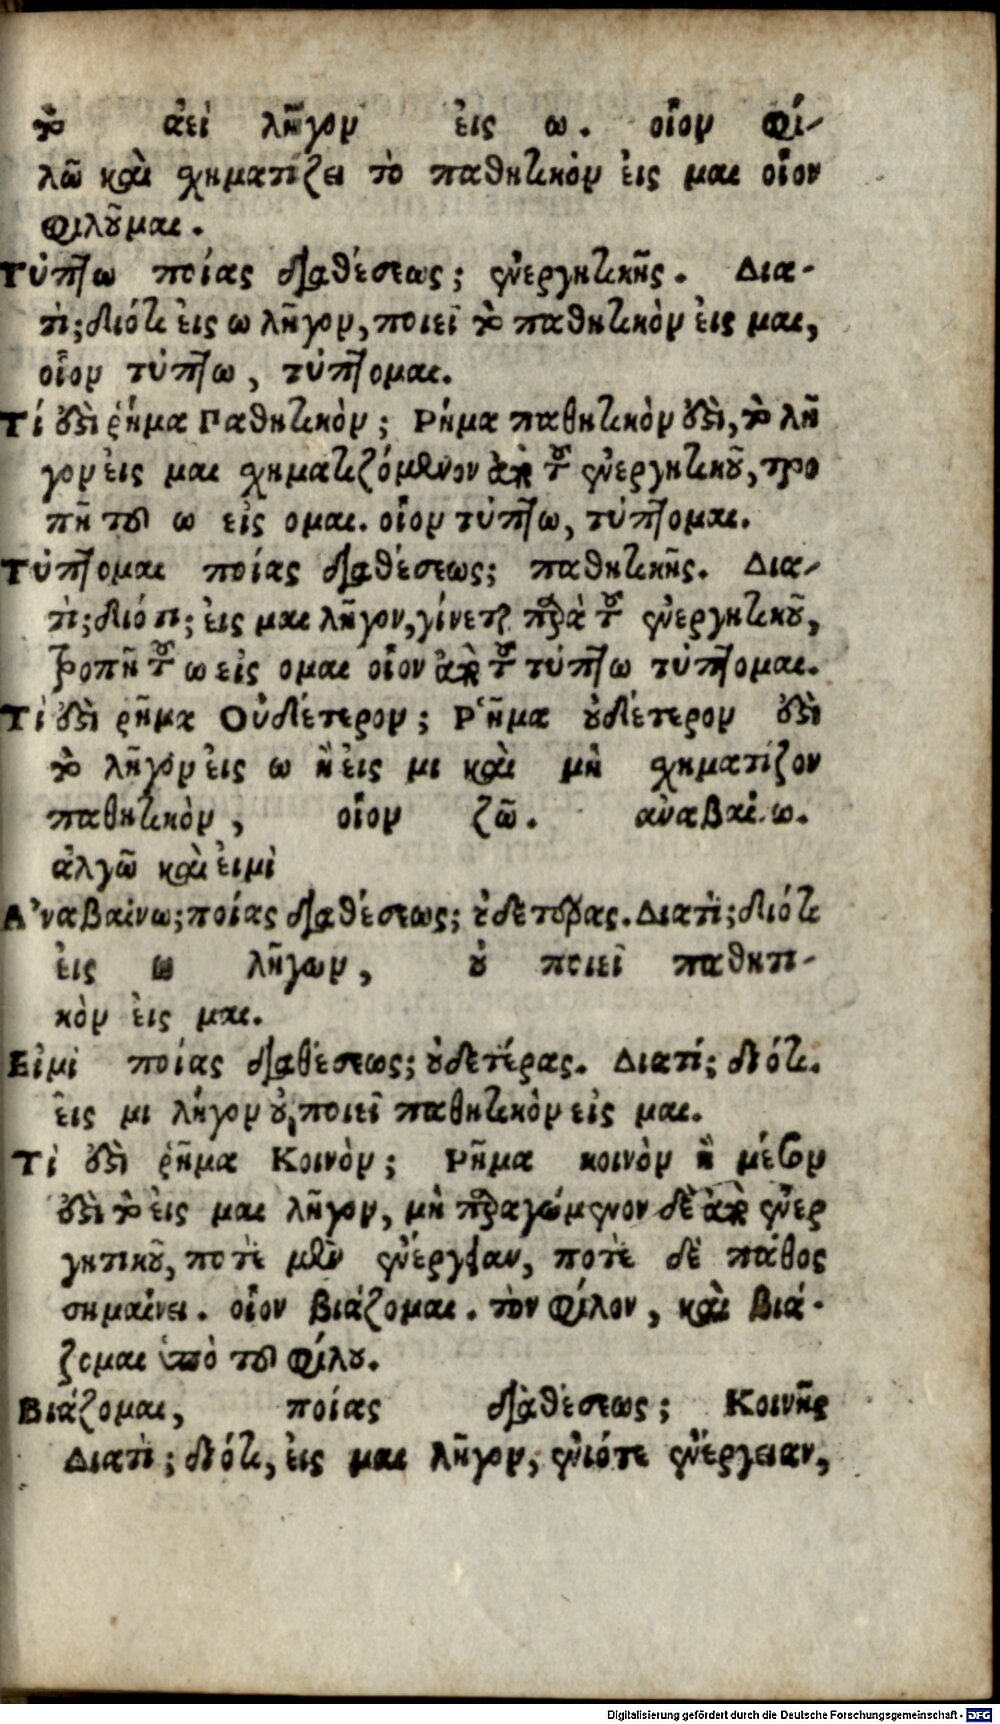 τὸ ἀεὶ λῆγον ἐις ω. οἷον φι-
λῶ καὶ χηματίζει τὸ παθητικὸν ἐις μαι οἷον
φιλοῦμαι.
Τύπτω ποίας διαθέσεως; ἐνεργητικῆς. Δια-
τὶ; διότι ἐις ω λῆγον, ποιεῖ τὸ παθητικὸν ἐις μαι,
οἷον τύπτω, τύπτομαι.
Τί ἐστι ῥῆμα Παθητικὸν; Ρῆμα παθητικὸν ἐστὶ, τὸ λῆ
γον ἐις μαι χηματιζόμενον ἀπὸ τοῦ ἐνεργητικοῦ, τρο
πῆ τοῦ ω εἰς ομαι. οἷον τύπτω, τύπτομαι.
Τύπτομαι ποίας διαθέσεως; παθητικῆς. Δια-
τὶ; διότι; ἐις μαι λῆγον, γίνεται παρὰ τοῦ ἐνεργητικοῦ,
τροπῆ τοῦ ω εἰς ομαι οἷον ἀπὸ τοῦ τύπτω τύπτομαι.
Τί ἐστὶ ῥῆμα Οὐδέτερον; Ρῆμα οὐδέτερον ἐστὶ
τὸ λῆγον ἐις ω ἢ ἐις μι καὶ μὴ χηματίζον
παθητικὸν, οἷον ζῶ. ἀναβαίνω.
ἀλγῶ καὶ ἐιμὶ
Αʼναβαίνω; ποίας διαθέσεως; οὐδετέρας. Διατὶ; διότι
ἐις ω λῆγων, οὐ ποιεῖ παθητι-
κὸν ἐις μαι.
Εἰμὶ ποίας διαθέσεως; οὐδετέρας. Διατί; διότι.
ἐις μι λήγον οὐ, ποιεῖ παθητικὸν εἰς μαι.
Τί ἐστὶ ῥῆμα Κοινὸν; Ρῆμα κοινὸν ἢ μέσον
ἐστὶ τὸ ἐις μαι λῆγον, μὴ παραγόμενον δὲ ἀπὸ ἐνερ
γητικοῦ, ποτὲ μὲν ἐνέργειαν, ποτὲ δὲ πάθος
σημαίνει. οἷον βιάζομαι. τὸν φίλον, καὶ βιά-
ζομαι ὑπὸ τοῦ φίλου.
Βιάζομαι, ποίας διαθέσεως; Κοινῆς
Διατὶ; διότι, ἐις μαι λῆγον, ἐνιότε ἐνέργειαν,
Digitalisierung gefördert durch die Deutsche Forschungsgemeinschaft - DFG